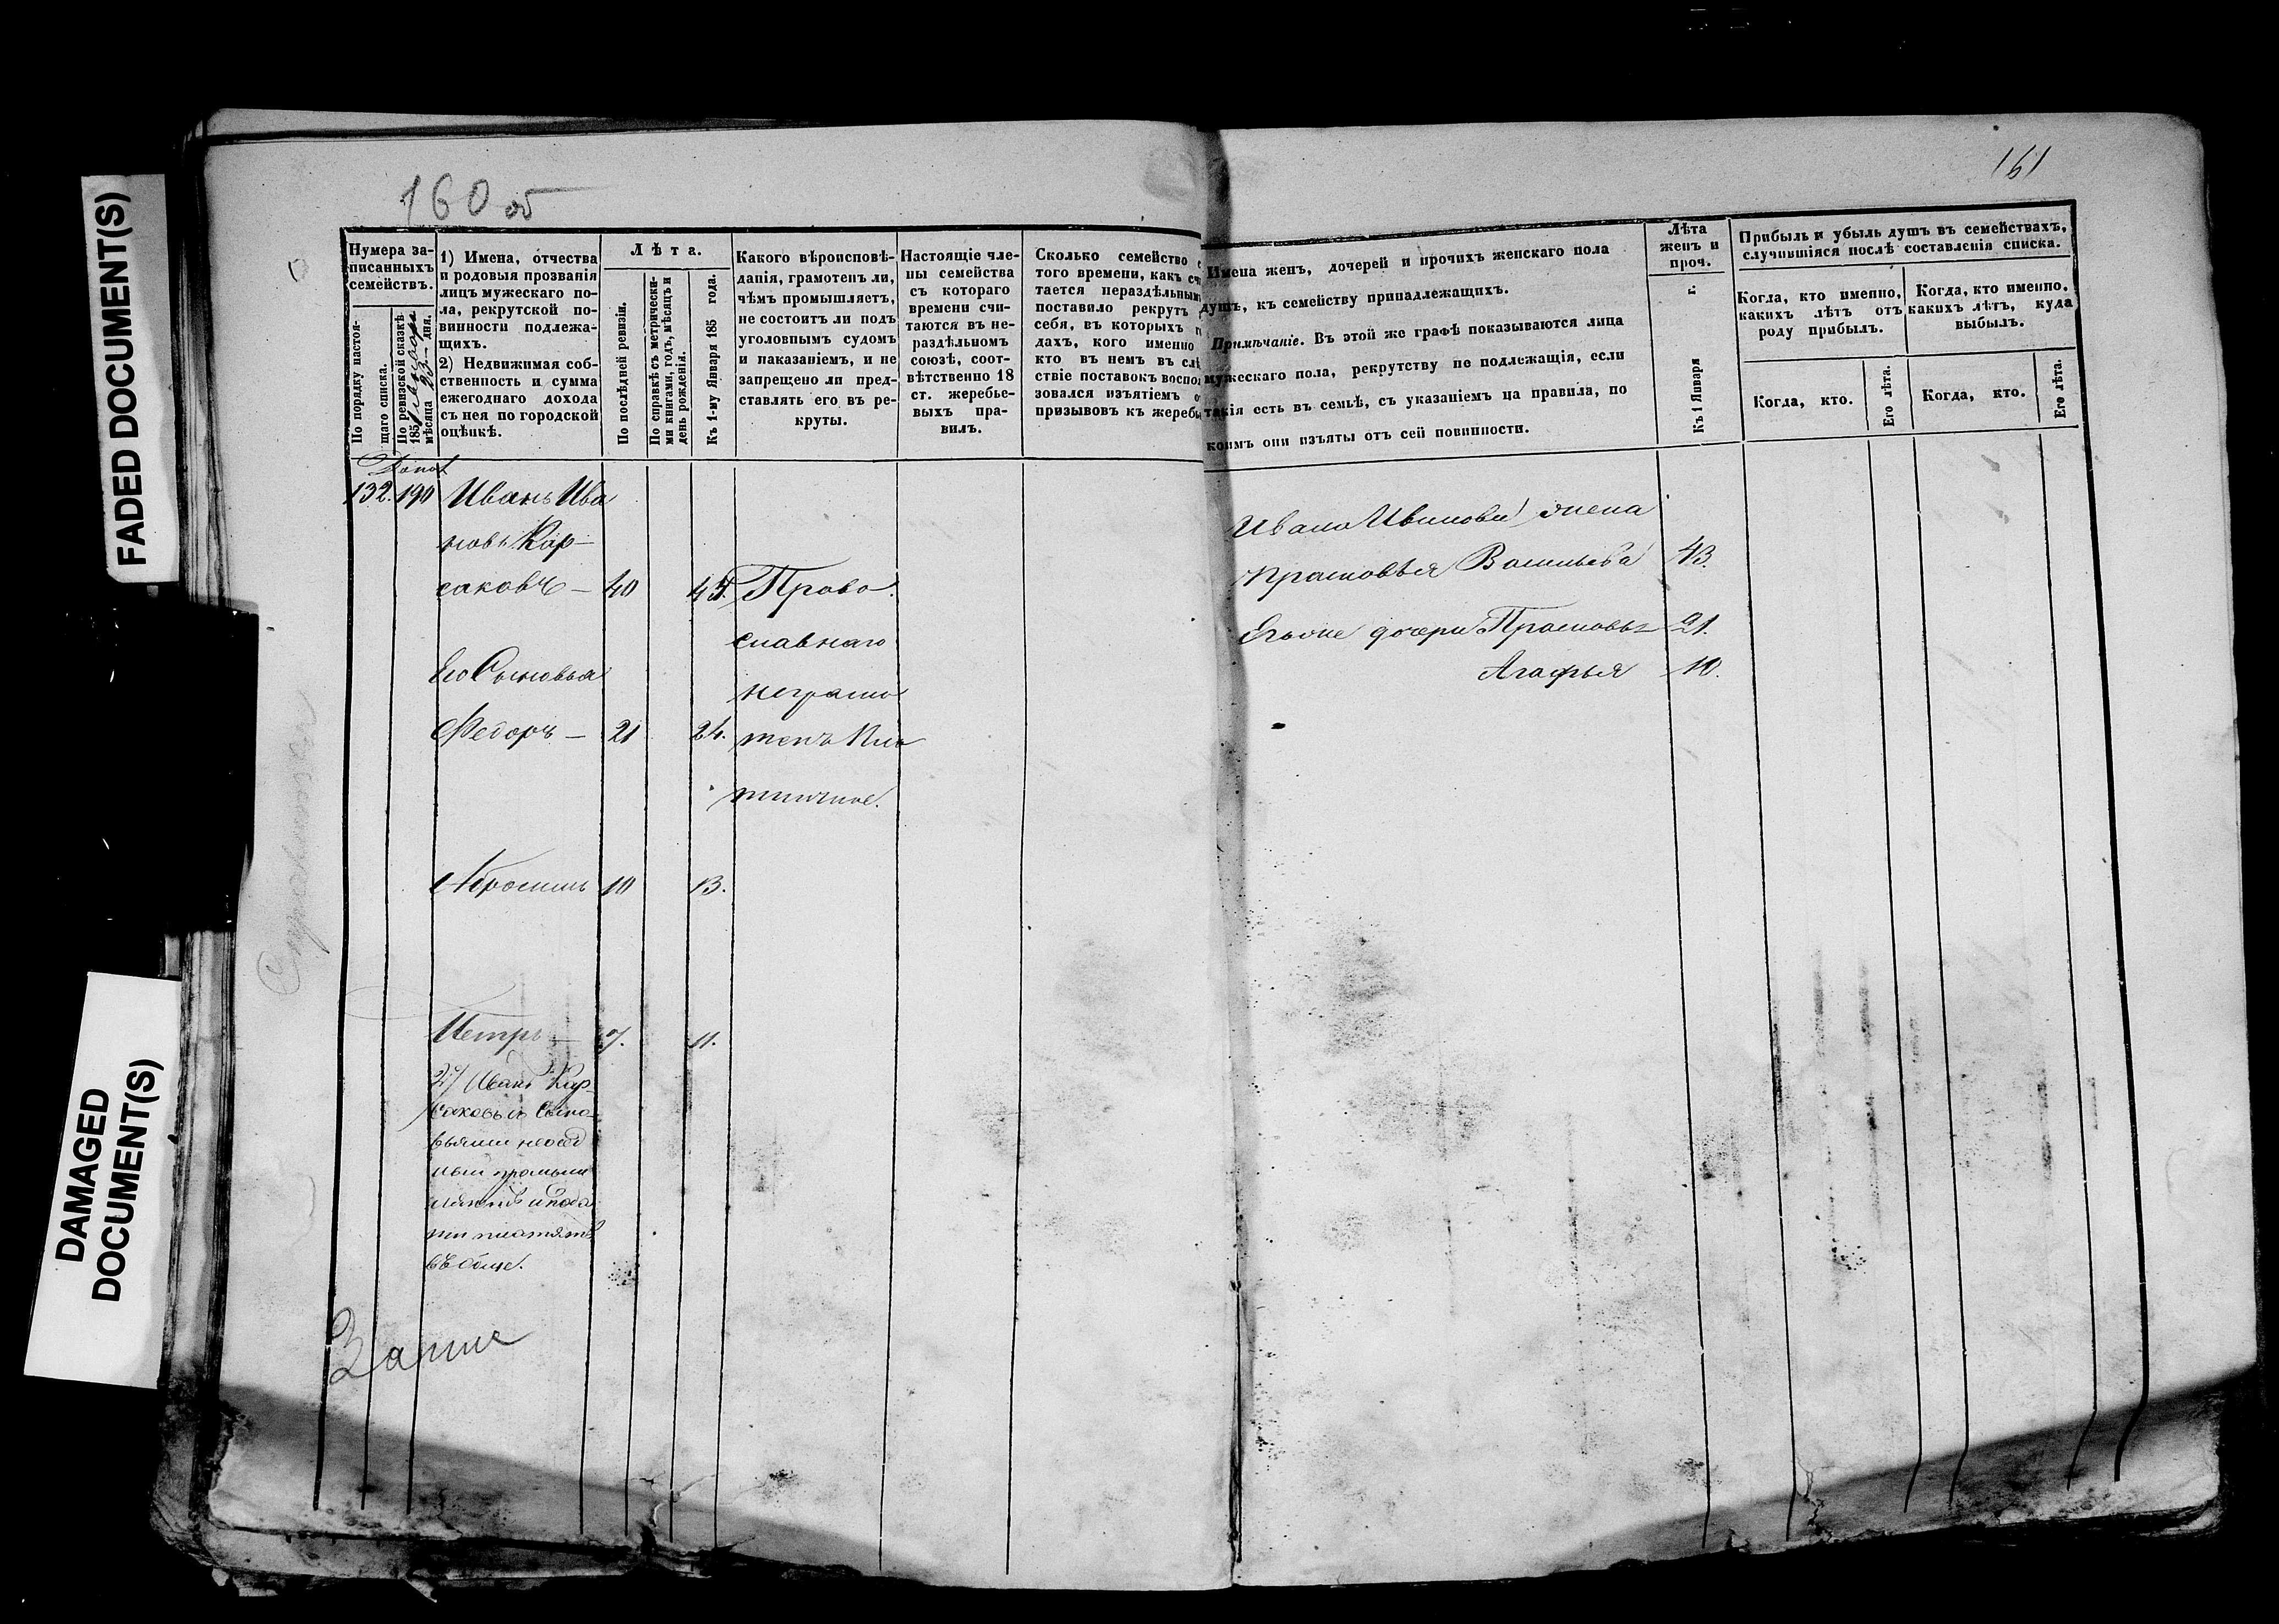 FADED DOCUMENT(S)
DAMAGED
DOCUMENT(S)
160 об
161
Нумера за-
писанныхъ
семействъ.
По порядку настоя-
щаго списка.
По ревизской сказкѣ
185
мѣсяца 23 дня.
1) Имена, отчества
и родовыя прозванія
лицъ мужескаго по-
ла, рекрутской по-
винности подлежа-
щихъ.
2) Недвижимая соб-
ственность и сумма
ежегоднаго дохода
съ нея по городской
оцѣнкѣ.
Лѣта.
По послѣдней ревизіи.
По справкѣ съ метрически-
ми книгами, годъ, мѣсяцъ и
день рожденія.
Къ 1-му Января 185 года.
Какого вѣроисповѣ-
данія, грамотенъ ли,
чѣмъ промышляетъ,
не состоитъ ли подъ
уголовнымъ судомъ
и наказаніемъ, и не
запрещено ли пред-
ставлять его въ ре-
круты.
Настоящіе чле-
ны семейства
съ котораго
времени счи-
таются въ не-
раздѣльномъ
союзѣ, соот-
вѣтственно 18
ст. жеребье-
выхъ пра-
вилъ.
Сколько семейство с
того времени, какъ сч
тается нераздѣльным
поставило рекрутъ
себя, въ которыхъ г
дахъ, кого именно
кто въ немъ въ слѣ
ствіе поставокъ воспол
зовался изъятіемъ о
призывовъ къ жеребь
Имена женъ, дочерей и прочихъ женскаго пола
душъ, къ семейству принадлежащихъ.
Примѣчаніе. Въ этой же графѣ показываются лица
мужескаго пола, рекрутству не подлежащія, если
такія есть въ семьѣ, съ указаніемъ на правила, по
коимъ они изъяты отъ сей повинности.
Лѣта
женъ и
проч.
Къ 1 Января г.
Прибыль и убыль душъ въ семействахъ,
случившіяся послѣ составленія списка.
Когда, кто именно,
какихъ лѣтъ отъ
роду прибылъ.
Когда, кто именно,
какихъ лѣтъ, куда
выбылъ.
Когда, кто.
Его лѣта.
Когда, кто.
Его лѣта.
132. 190 Иванъ Ива
новъ Кар-
саковъ — 40 Право
славнаго
Его Сыновья
неграмо
Федоръ — 21 24. тенъ
Абросимъ 10 13.
Петръ — 7. 11.
2) Иванъ Кар-
саковъ съ Сыно-
вьями
ти платятъ
въ обще.
Ивана Иванова жена
Прасковья Васильева 43.
Его же дочери Прасковья 21.
Агафья 10.